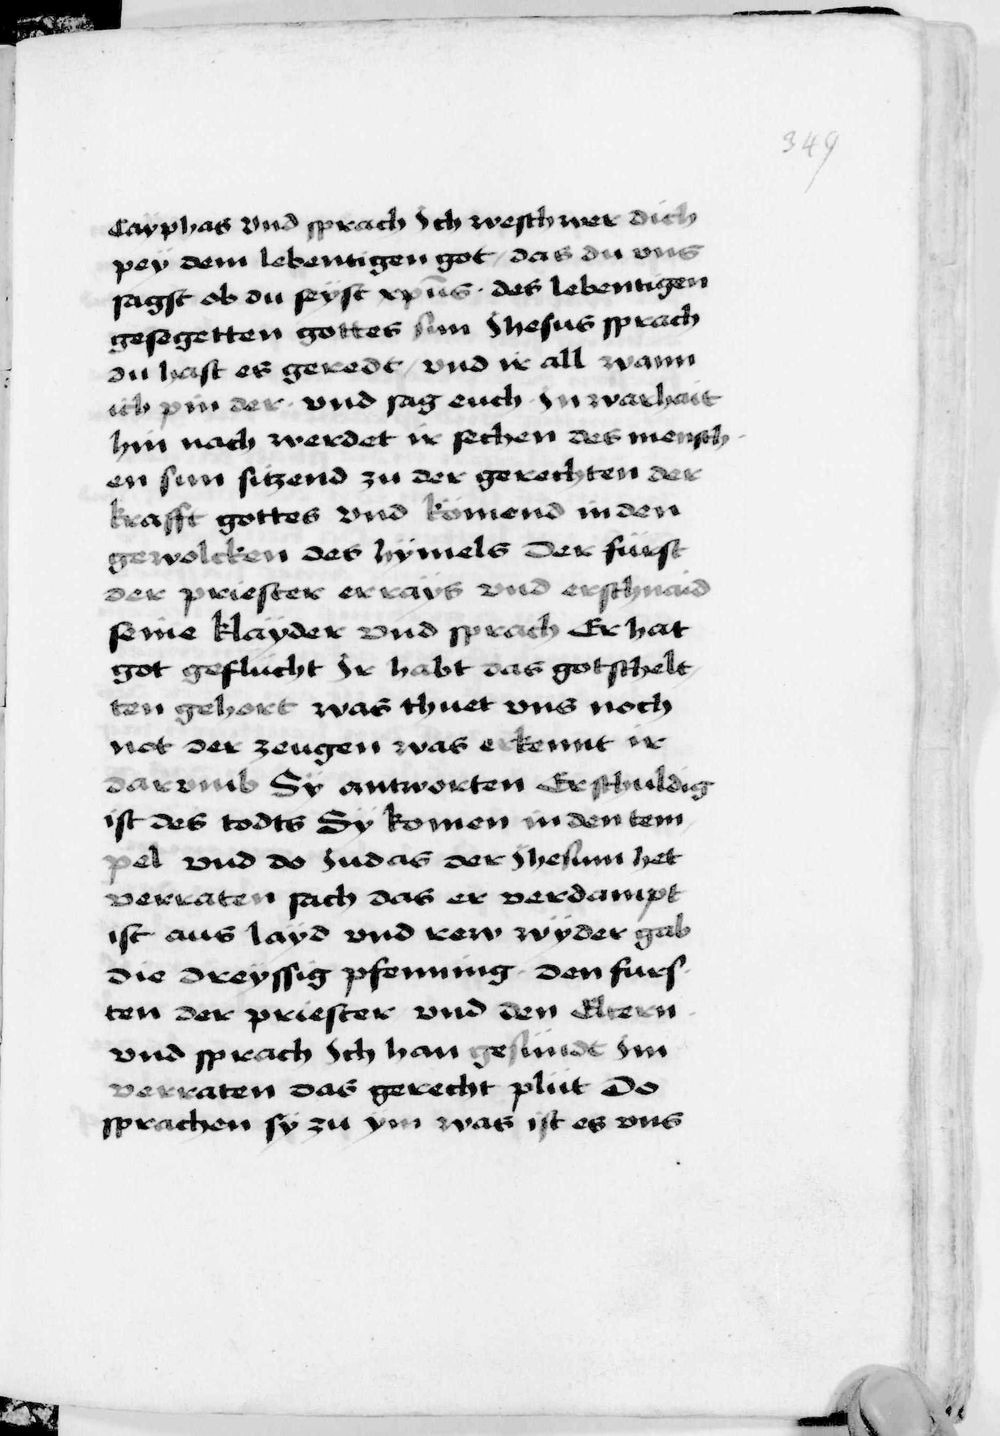 349
Cayphas vnd sprach Ich weschwer dich
peÿ dem lebentigen got / das du vns
sagst ob du seÿst xp̄us · des lebentigen
gesegetten gottes sun Ihesus sprach
du hast es geredt / vnd ir all wann
ich pin der · vnd sag euch · In warhait
hin nach werdet ir sechen des mensch-
en sun sitzend zu der gerechten der
krafft gottes vnd komend in den
gewolcken des hÿmels Der fürst
der priester errayß vnd erschnaid
seine klaÿder vnd sprach Er hat
got geflücht Ir habt das gotschelt/
ten gehort was thuet vns noch
not der zeugen was erkennt ir
darvmb Sÿ antworten Er schuldig
ist des todts Sÿ komen in den tem/
pel vnd do Iudas der Ihesum het
verraten sach das er verdampt
ist aus laÿd vnd rew wÿder gab
die dreÿssig pfenning · den furs-
ten der priester vnd den Eltern ·
vnd sprach Ich han gesündt Im
verraten das gerecht plüt Do
sprachen sÿ zu ym was ist es vns